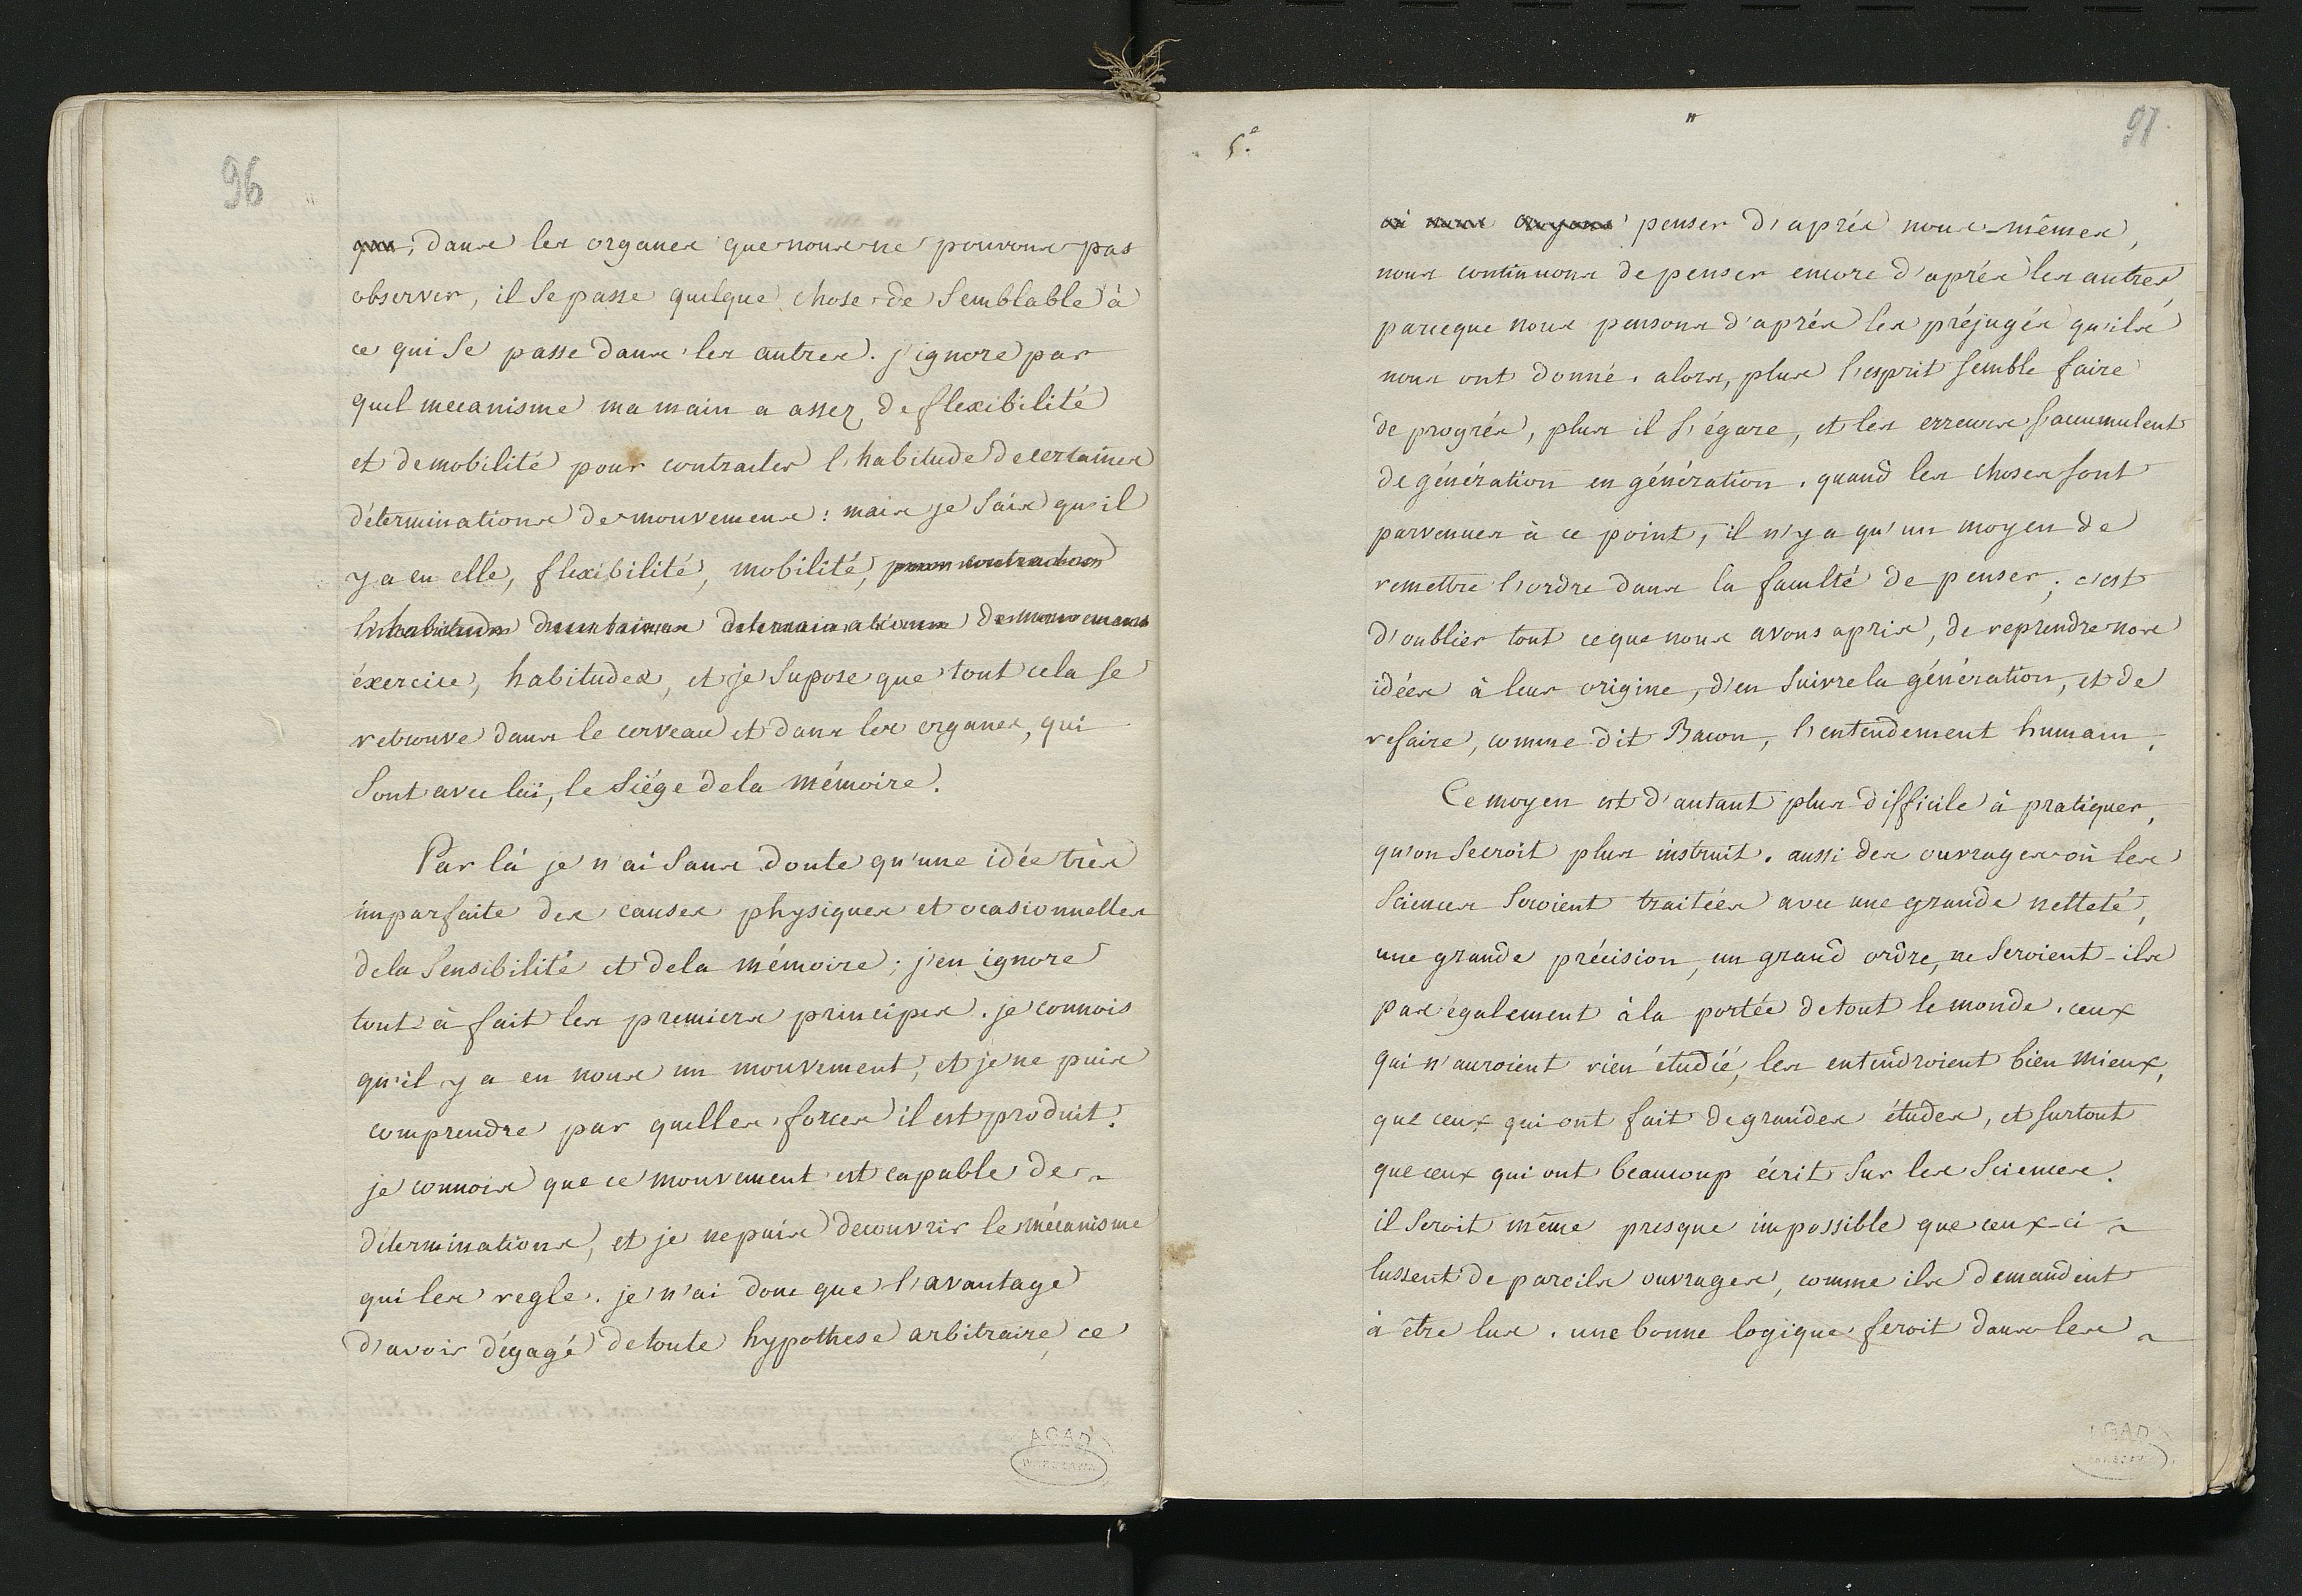 96
que, dans les organes que nous ne pouvons pas
observer, il se passe quelque chose de semblable à
ce qui se passe dans les autres. j'ignore par
quel mecanisme ma main a assez de flexibilité
et de mobilité pour contracter l'habitude de certaines
déterminations de mouvemens : mais je sais qu'il
y a en elle, flexibilité, mobilité, pour contracter
l'habitude de certaines déterminations de mouvemens
éxercice, habitudes, et je supose que tout cela se
retrouve dans le cerveau et dans les organes, qui
sont avec lui, le siége de la mémoire.
Par là je n'ai sans doute qu'une idée très
imparfaite des causes physiques et ocasionnelles
de la sensibilité et de la mémoire ; j'en ignore
tout à fait les premiers principes. je connois
qu'il y a en nous un mouvement, et je ne puis
comprendre par quelles forces il est produit.
je connois que ce mouvement est capable de
déterminations, et je ne puis decouvrir le mécanisme
qui les regle. je n'ai donc que l'avantage
d'avoir dégagé de toute hypothese arbitraire, ce
AGAD
WARSZAWA
5.e
97
où nous croyons penser d'après nous-mêmes,
nous continuons de penser encore d'après les autres,
parceque nous pensons d'après les préjugés qu'ils
nous ont donné. alors, plus l'esprit semble faire
de progrès, plus il s'égare, et les erreurs s'accumulent
de génération en génération. quand les choses sont
parvenues à ce point, il n'y a qu'un moyen de
remettre l'ordre dans la faculté de penser ; c'est
d'oublier tout ce que nous avons apris, de reprendre nos
idées à leur origine, d'en suivre la génération, et de
refaire, comme dit Bacon, l'entendement humain.
Ce moyen est d'autant plus difficile à pratiquer,
qu'on se croit plus instruit. aussi des ouvrages où les
sciences seroient traitées avec une grande netteté,
une grande précision, un grand ordre, ne seroient-ils
pas également à la portée de tout le monde. ceux
qui n'auroient rien étudié, les entendroient bien mieux,
que ceux qui ont fait de grandes études, et surtout
que ceux qui ont beaucoup écrit sur les sciences.
il seroit même presque impossible que ceux-ci
lussent de pareils ouvrages, comme ils demandent
à être lus. une bonne logique feroit dans les
AGAD